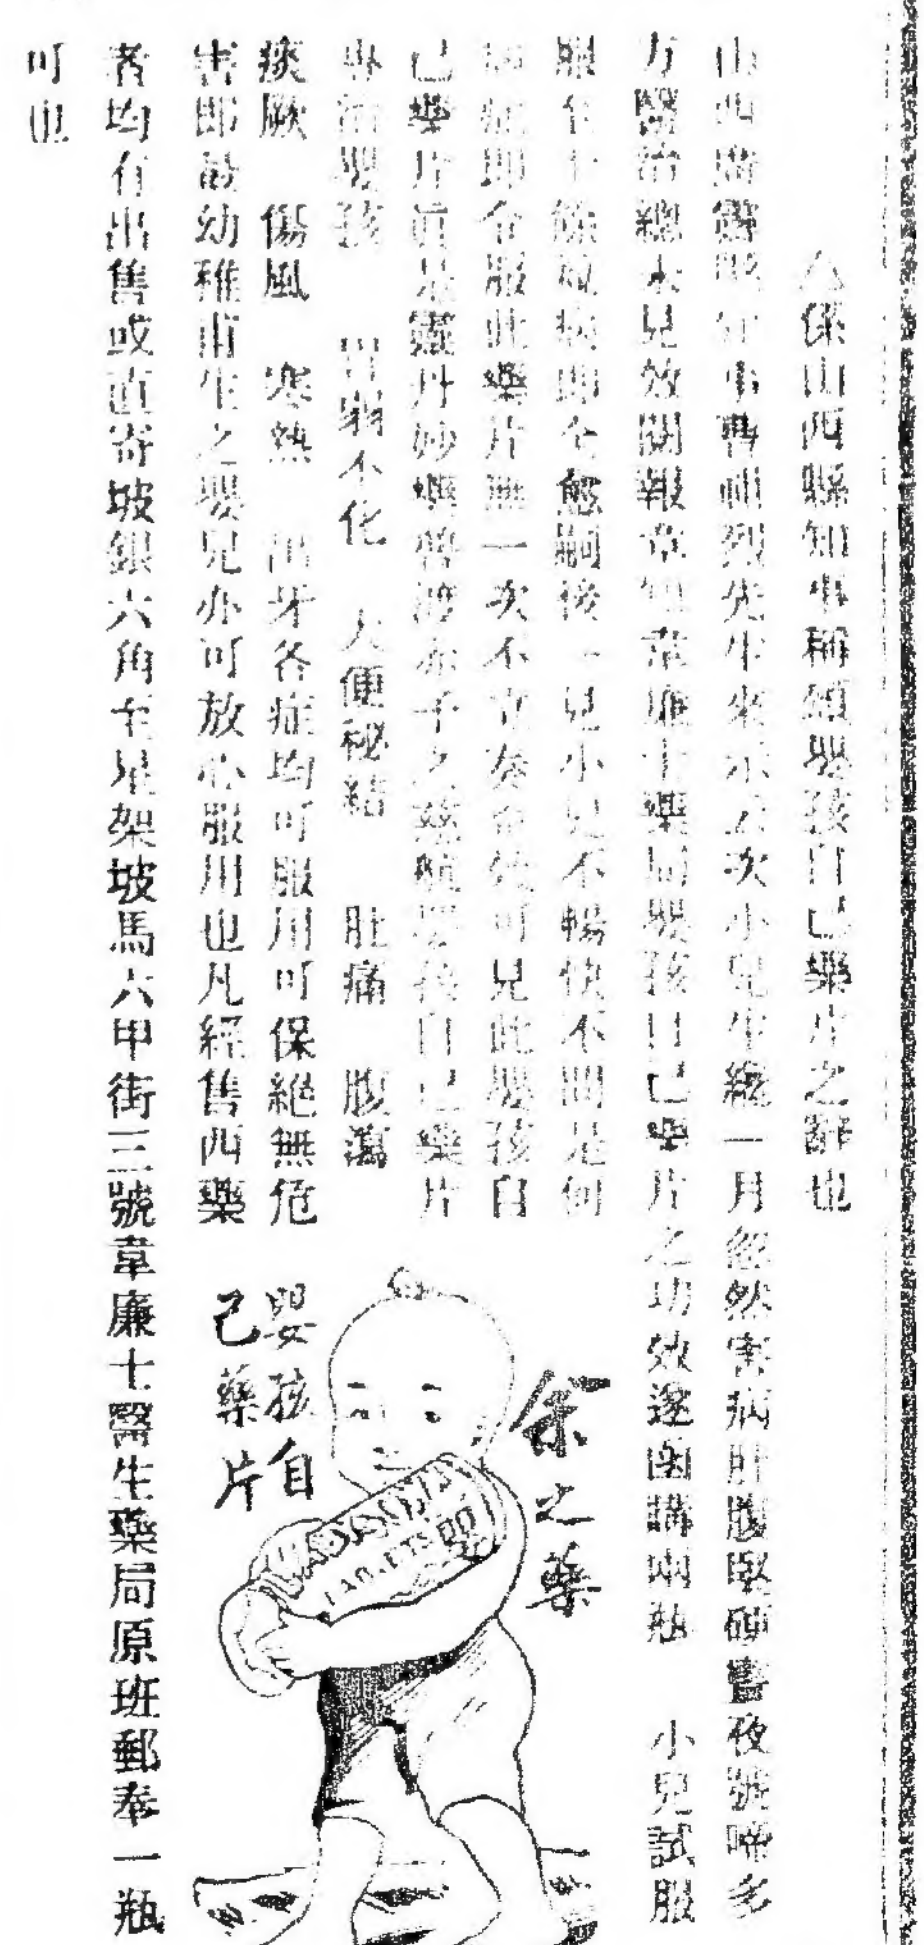 係山西縣知事稱頌嬰孩自己藥片之辭也
山西 靈 知事曹 烈先生來示云次小兒生纔一月忽然害病肚腹堅硬晝夜號啼多
方醫治總未見效閱報章知韋廉士藥局嬰孩自己藥片之功效遂函購兩瓶 小兒試服
服至十餘 病即全愈嗣後一見小兒不暢快不問是何
病症即令服此藥片無一次不立奏奇效可見此嬰孩自
己藥片眞是靈丹妙藥普渡赤子之慈航嬰孩自己藥片
專治嬰孩 胃弱不化 大便秘結 肚痛 腹瀉
痰厥 傷風 寒熱 出牙各症均可服用可保絕無危
害即最幼稚甫生之嬰兒亦可放心服用也凡經售西藥
者均有出售或直寄坡銀六角至星架坡馬六甲街三號韋廉士醫生藥局原班郵奉一瓶
可也
余之藥
嬰孩自
己藥片
TABLETS